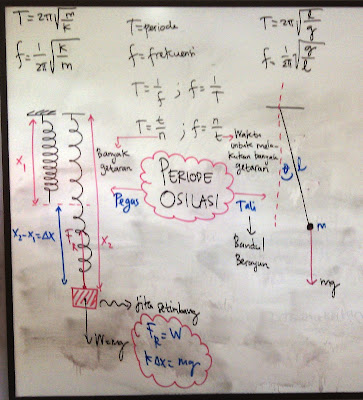 T = 2π√m/k
f = 1/2π √k/m
T = periode
f = frekuensi
T = 1/f ; f = 1/T
T = t/n ; f = n/t
T = 2π√l/g
f = 1/2π √g/l
Banyak
getaran
Waktu
untuk mela-
kukan banyak
getaran
PERIODE
OSILASI
Pegas
Tali
Bandul
Berayun
x₁
x₂-x₁=Δx
F_R
x₂
jika setimbang
W=mg
F_R = W
kΔx = mg
θ
l
m
mg